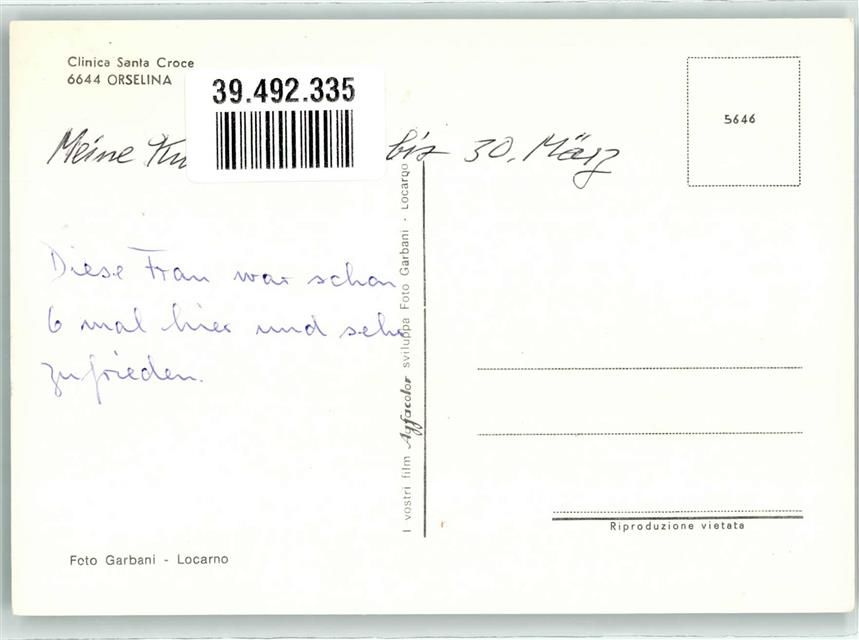 Clinica Santa Croce
6644 ORSELINA
39.492.335
5646
Meine bis 30. März
Diese Frau war schon
6 mal hier und sehr
zufrieden.
I vostri film Agfacolor sviluppa Foto Garbani - Locarno
Riproduzione vietata
Foto Garbani - Locarno